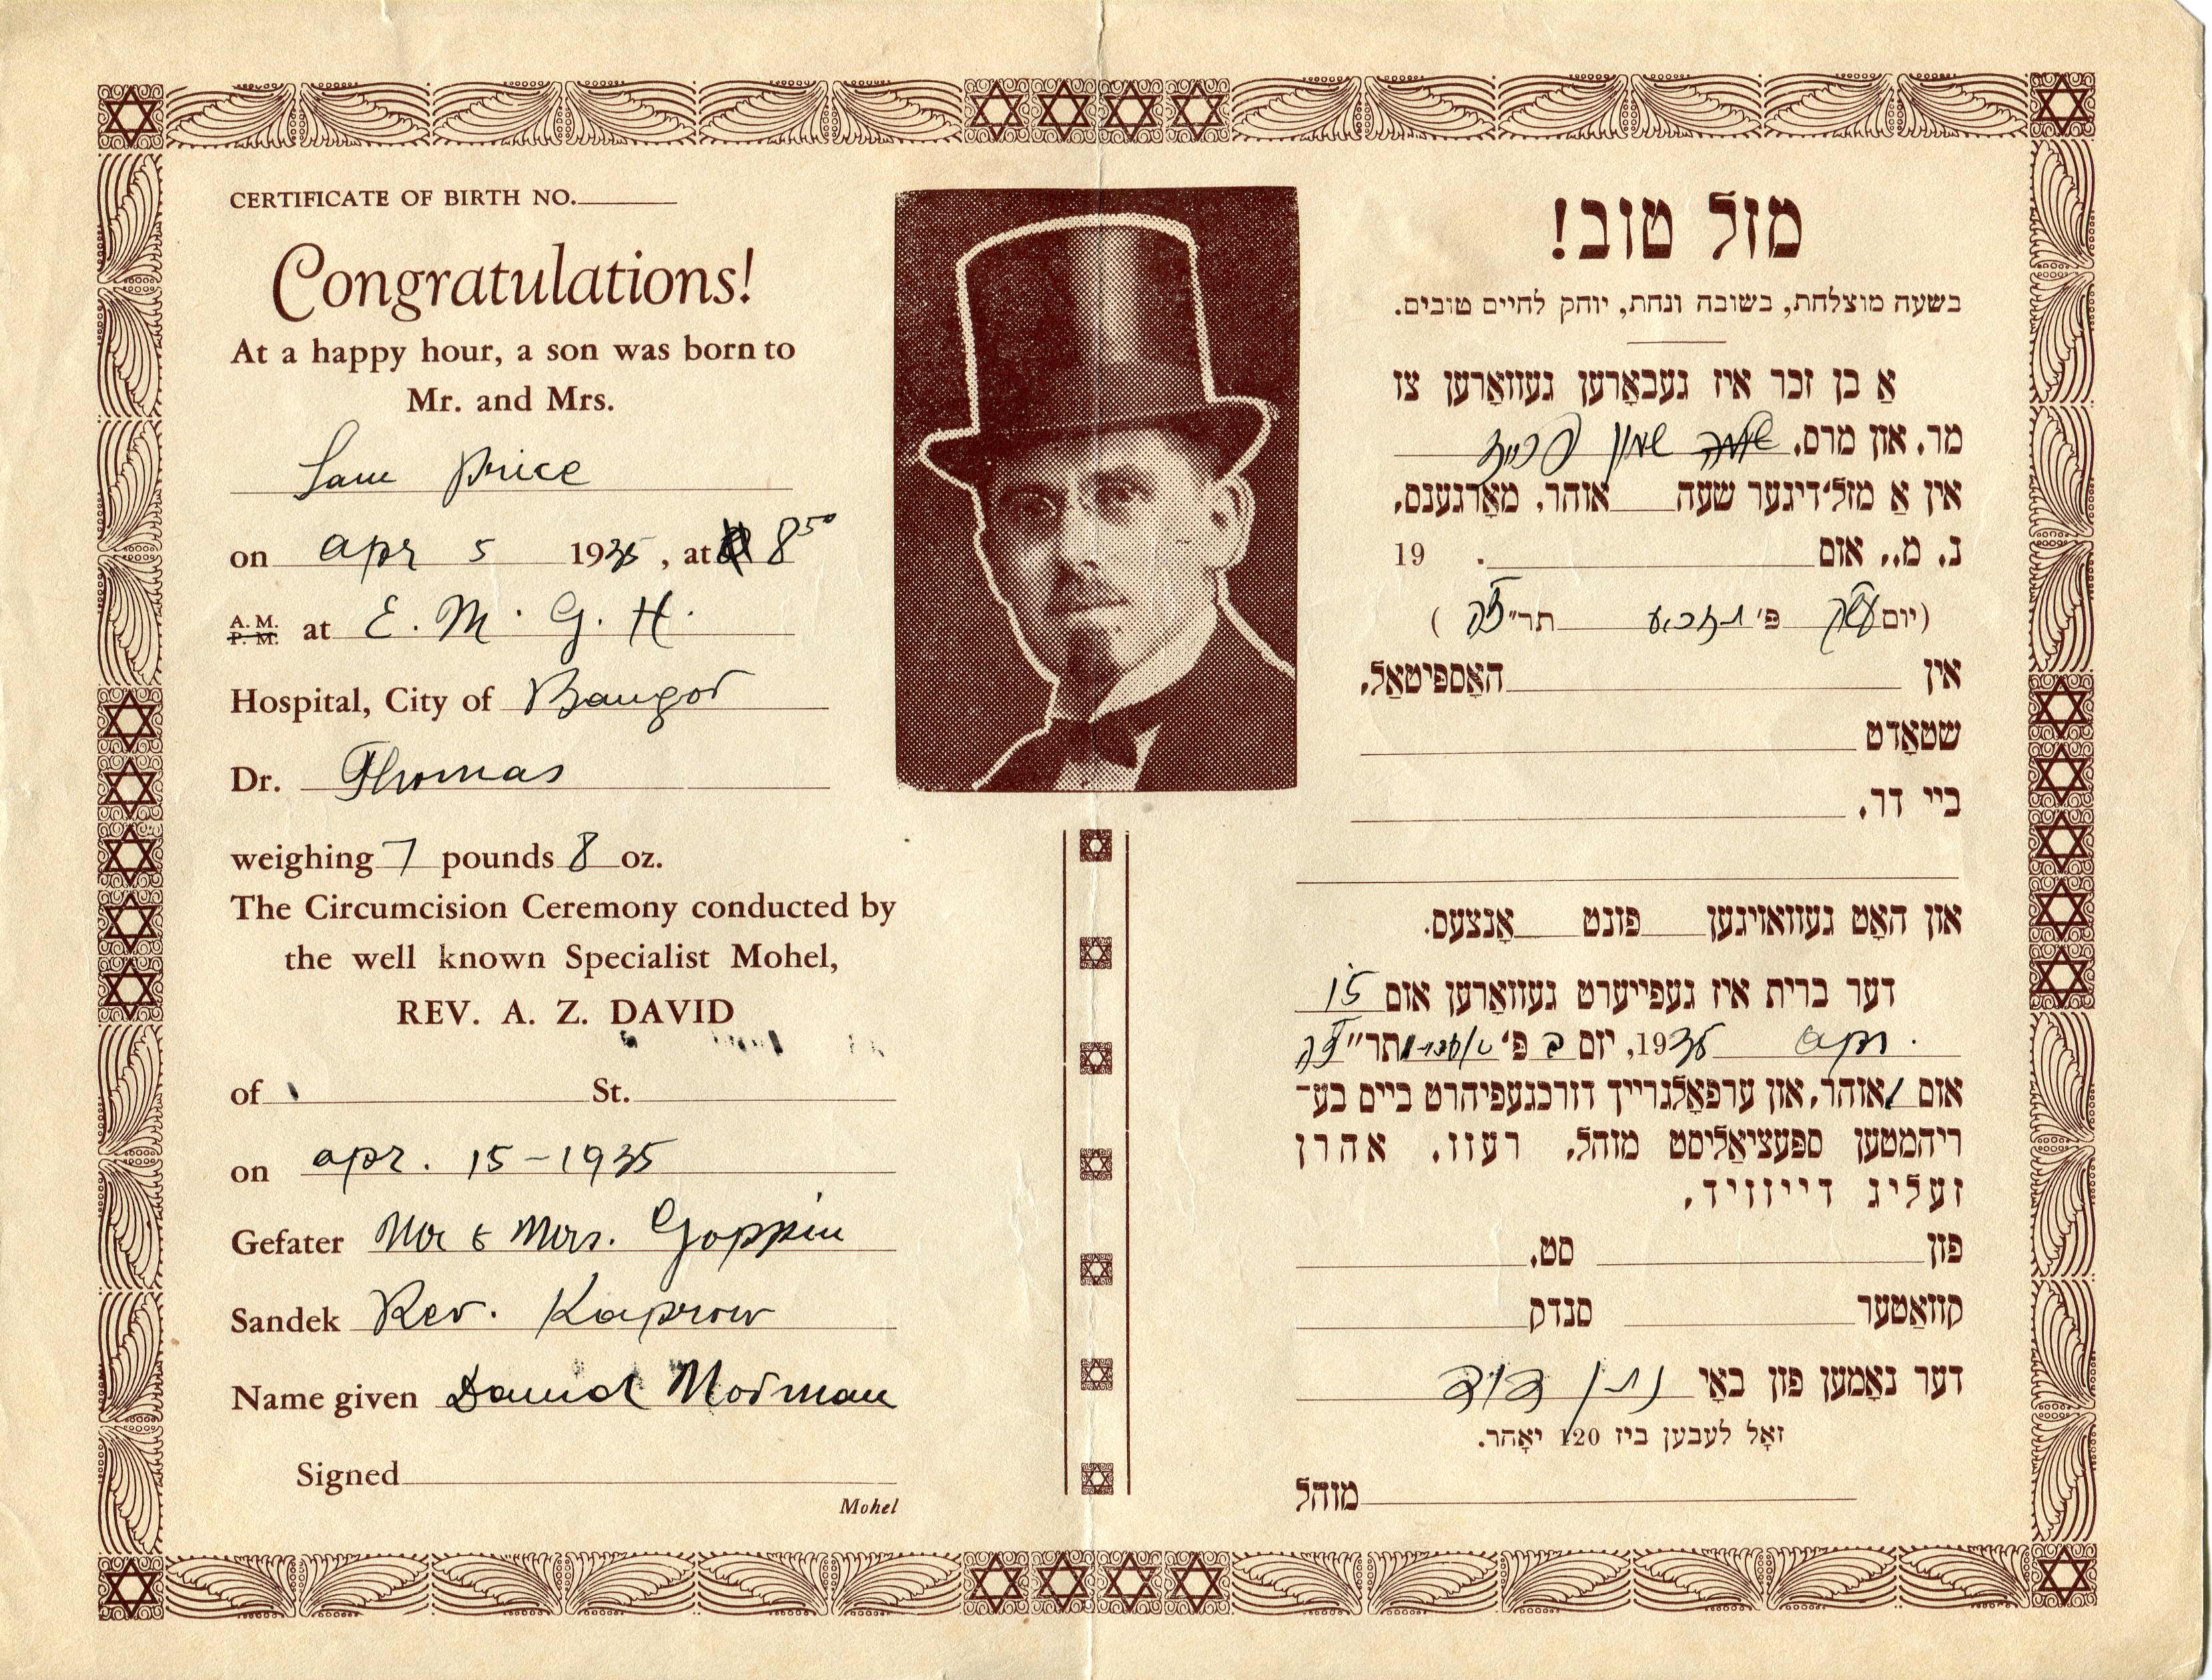 CERTIFICATE OF BIRTH NO.
Congratulations!
At a happy hour, a son was born to
Mr. and Mrs.
Sam Price
on apr 5 1935, at 8 50
A. M. P. M. at E. M. G. H.
Hospital, City of Bangor
Dr. Thomas
weighing 7 pounds 8 oz.
The Circumcision Ceremony conducted by
the well known Specialist Mohel,
REV. A. Z. DAVID
of St.
on apr. 15-1935
Gefater Mr & Mrs. Goppin
Sandek Rev. Kaprow
Name given David Norman
Signed
Mohel
מזל טוב!
בשעה מוצלחת, בשובה ונחת, יוחק לחיים טובים.
אַ בן זכר איז געבאָרען געוואָרען צו
מר. און מרס. שמעון פרייז
אין אַ מזל'דיגער שעה אוהר, מאָרגענס,
נ. מ., אום . 19
(יום עש"ק פ' תזריע תר"צה)
אין האָספּיטאַל,
שטאָדט
ביי דר.
און האָט געוואויגען פונט אָנצעס.
דער ברית איז געפייערט געוואָרען אום 15
apr. 1935, יום ב פ' תר"צה
אום 1 אוהר, און ערפאָלגרייך דורכגעפיהרט ביים בע-
ריהמטען ספּעציאַליסט מוהל, רעוו. אהרן
זעליג דייוויד,
פון סט.
קוואַטער סנדק
דער נאָמען פון באָי נתן דוד
זאָל לעבען ביז 120 יאָהר.
מוהל